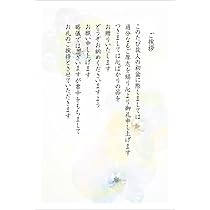 ご挨拶
このたび故人の初盆に際しましては
過分なるご厚志を賜り心より御礼申し上げます
つきましては心ばかりの品を
お贈りいたします
どうぞお納めくださいますよう
お願い申し上げます
略儀ではございますが書中をもちまして
お礼のご挨拶とさせていただきます